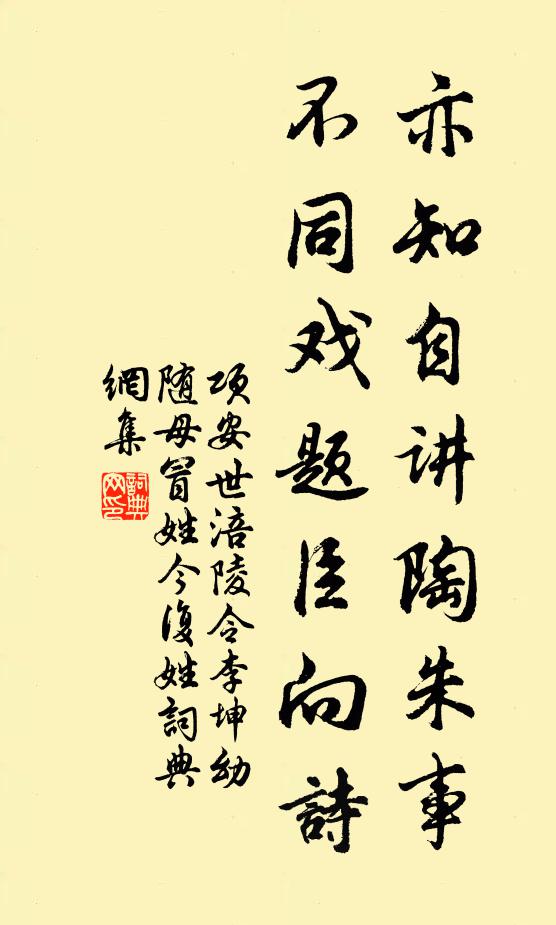 亦知自讲陶朱事
不同戏题臣向詩
项安世涪陵令李坤幼
随母冒姓今復姓詞典
網集
詞典
网印